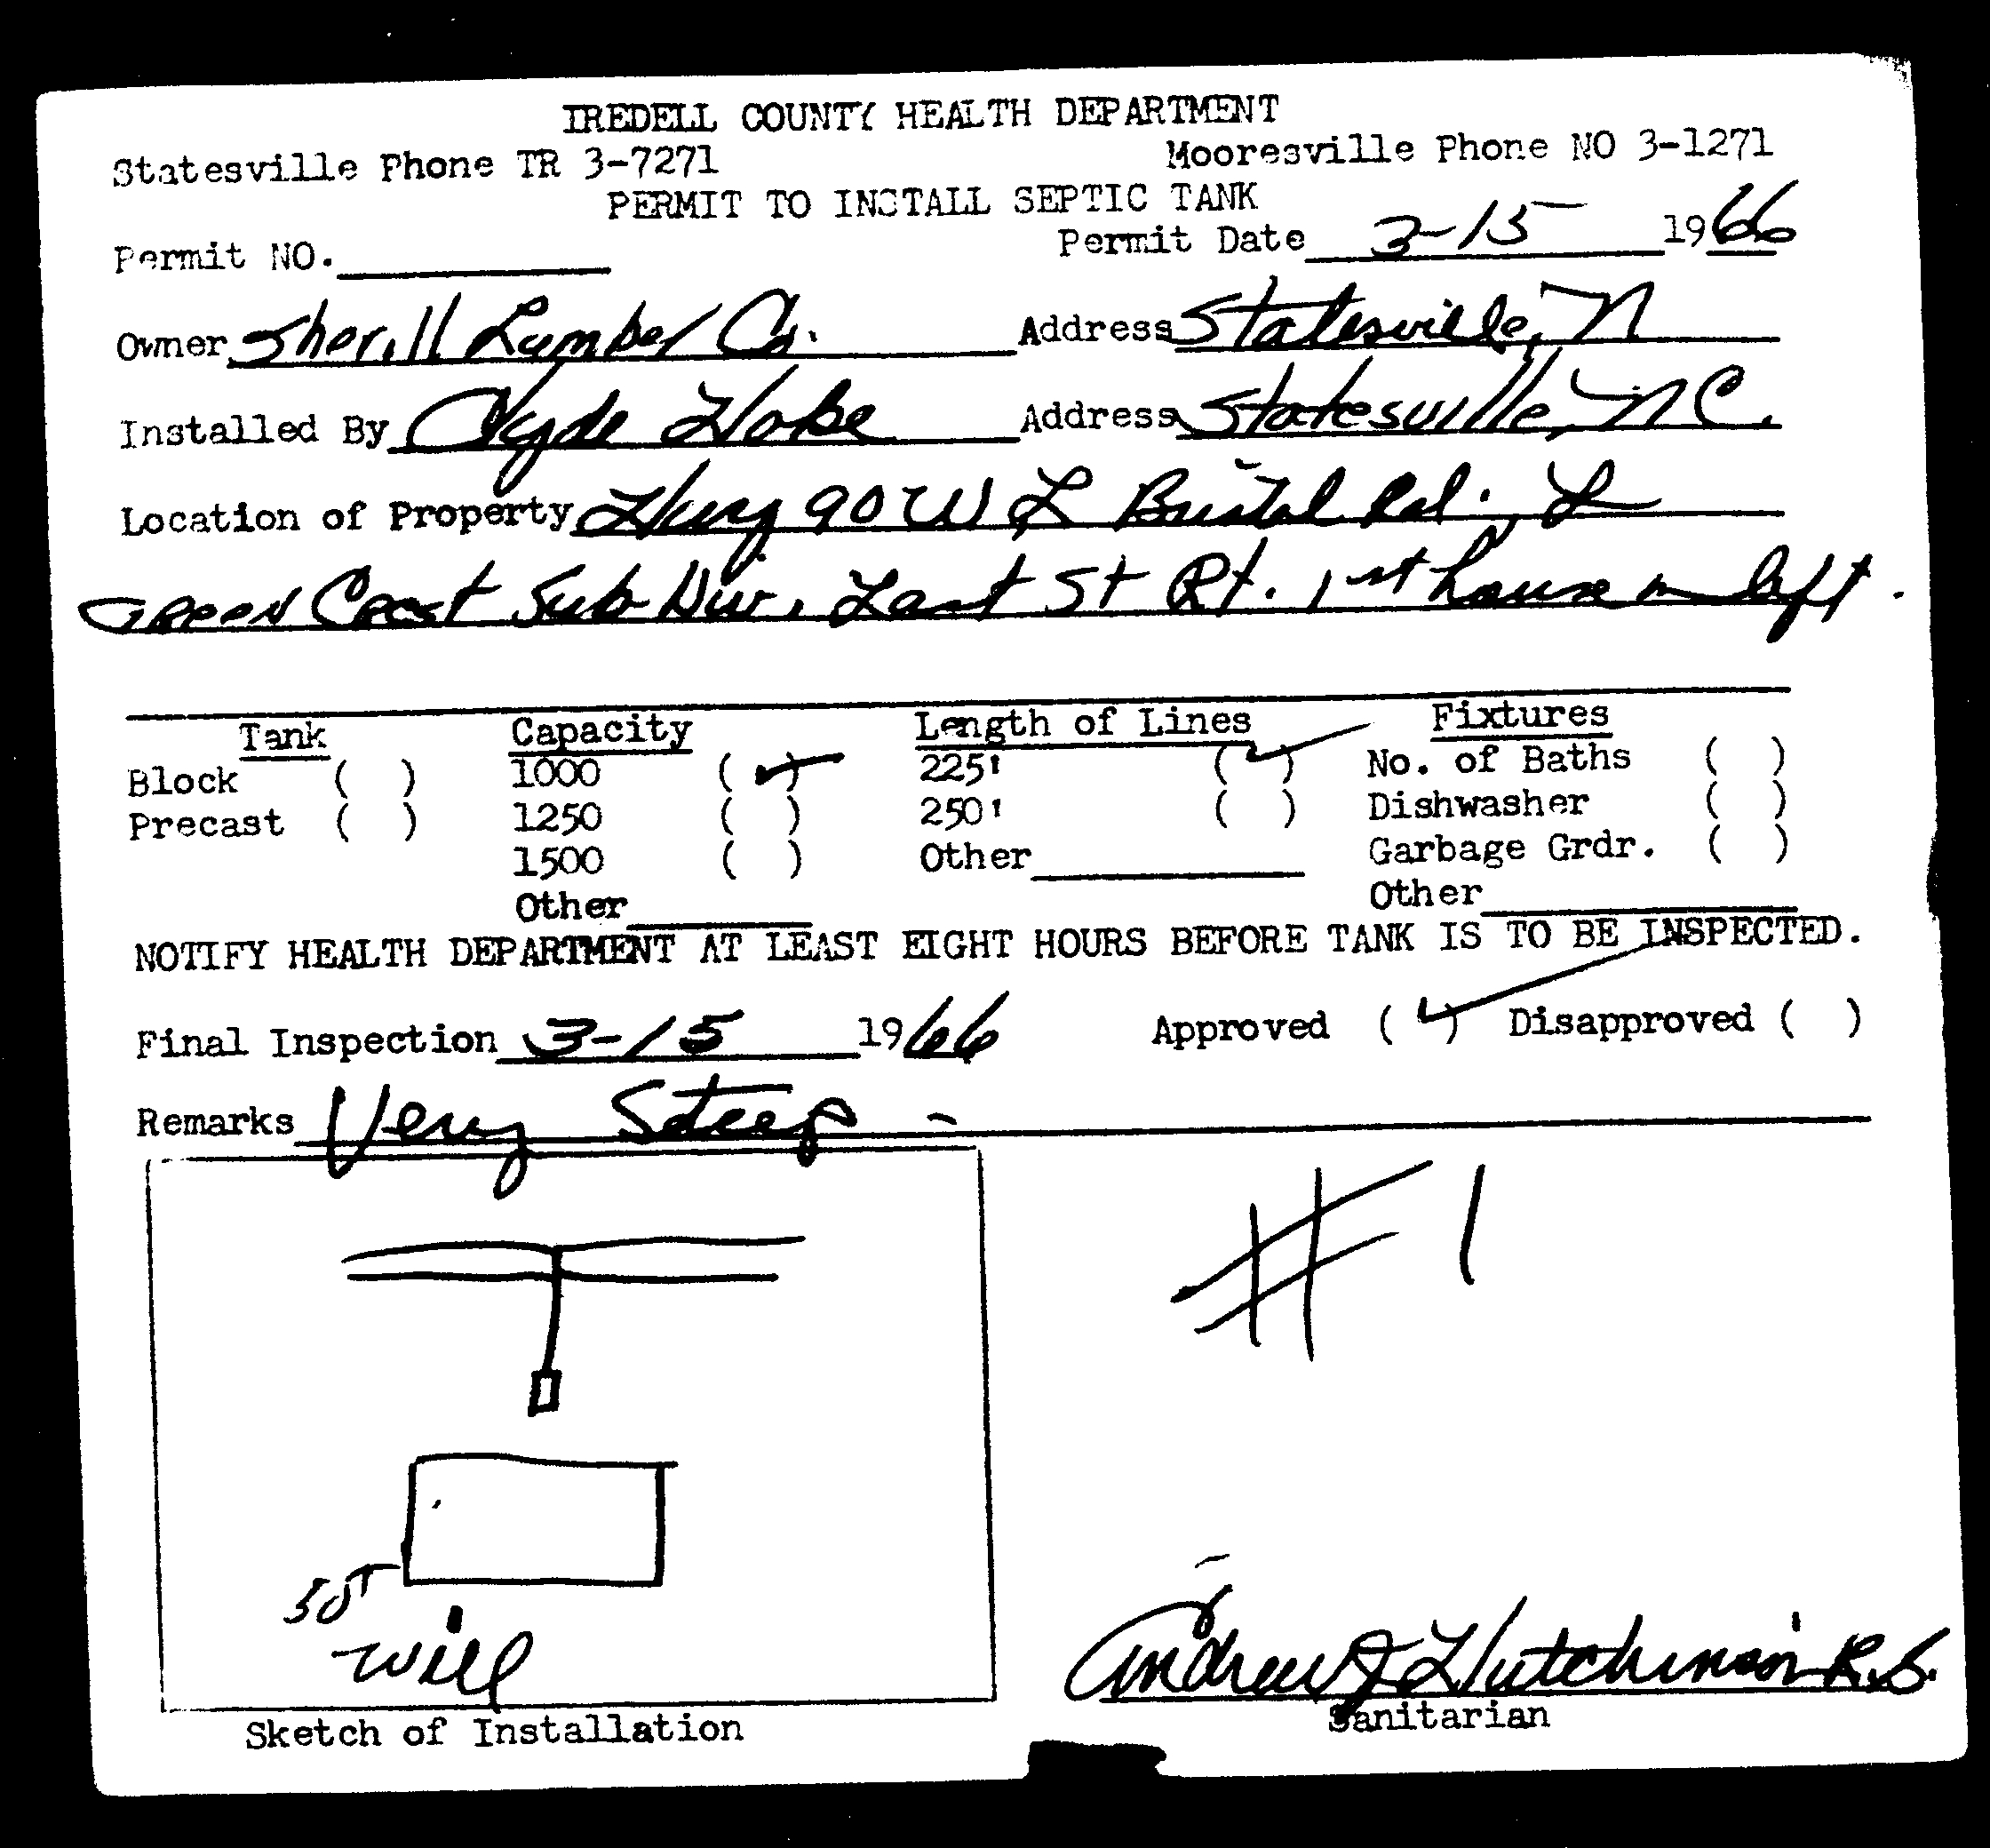 IREDELL COUNTY HEALTH DEPARTMENT
Statesville Phone TR 3-7271 Mooresville Phone NO 3-1271
PERMIT TO INSTALL SEPTIC TANK
Permit NO. Permit Date 3-15 1966
Owner Sherill Lumber Co. Address Statesville, N
Installed By Clyde Hoke Address Statesville, N C.
Location of Property Hwy 90 W L Bristol Rd. L
Green Crest Sub Div. Last St Rt. 1st house on left.
Tank Capacity Length of Lines Fixtures
Block ( ) 1000 (✓) 225' (✓) No. of Baths ( )
Precast ( ) 1250 ( ) 250' ( ) Dishwasher ( )
1500 ( ) Other Garbage Grdr. ( )
Other Other
NOTIFY HEALTH DEPARTMENT AT LEAST EIGHT HOURS BEFORE TANK IS TO BE INSPECTED.
Final Inspection 3-15 1966 Approved (✓) Disapproved ( )
Remarks Very Steep -
# 1
Andrew J Hutchinson R.S.
Sketch of Installation Sanitarian